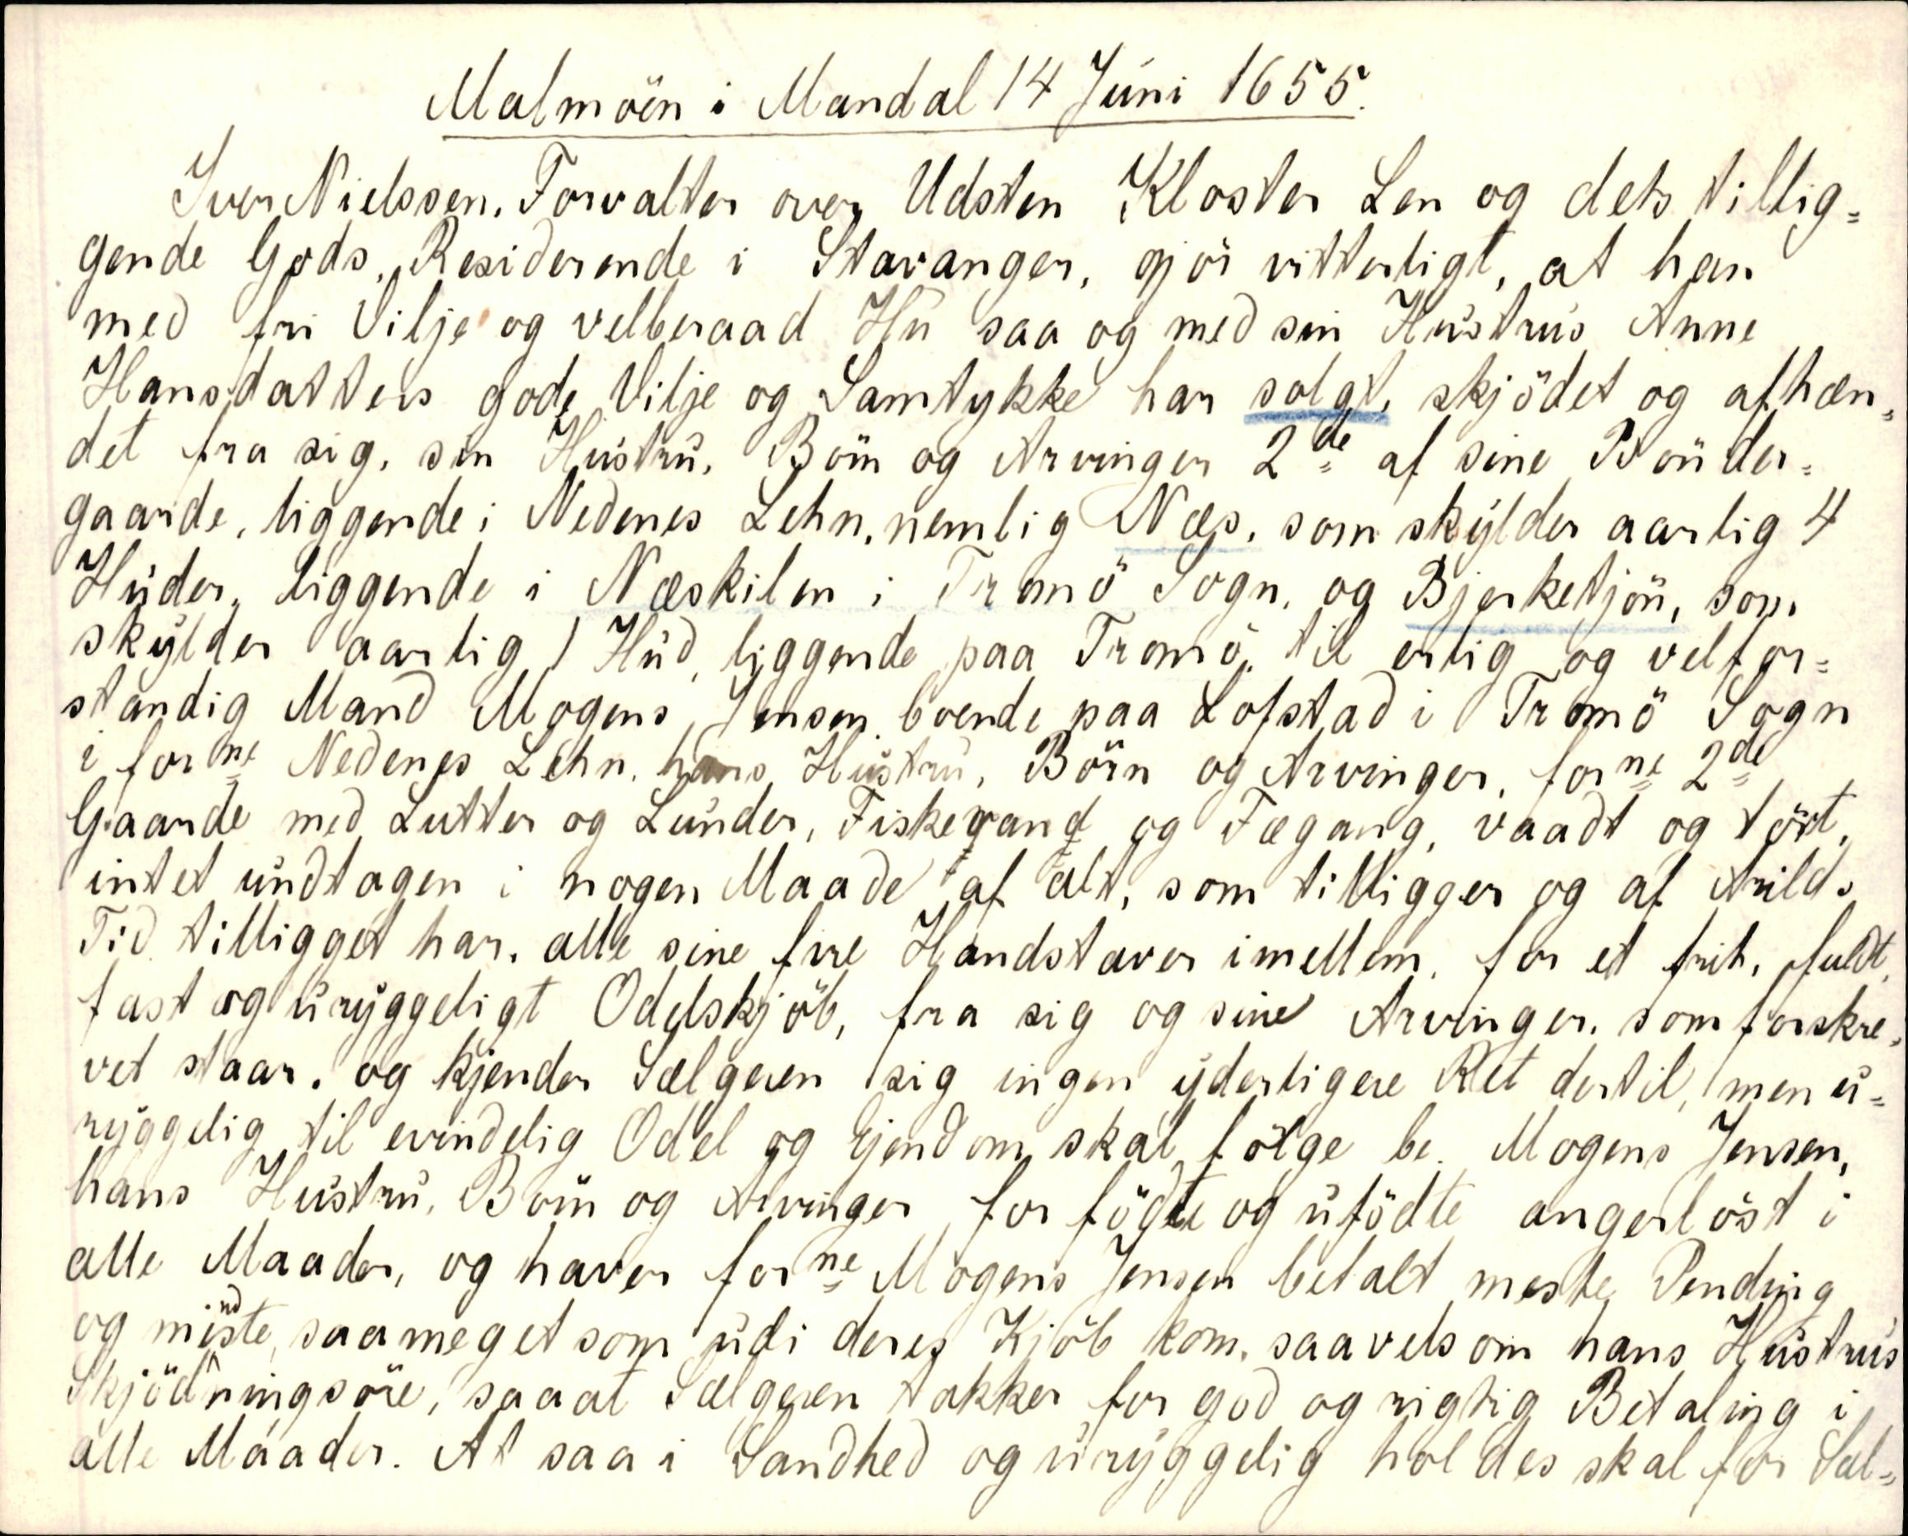 Malmöen i Mandal 14 Juni 1655.
Iver Nielssen, Forvalter over Udsten Kloster Len og dets tillig=
gende Gods, Residerende i Stavanger, gjör vitterligt, at han
med fri Vilje og velberaad Hu saa og med sin Hustrus Anne
Hansdatters gode Vilje og Samtykke har solgt, skjödet og afhæn=
det fra sig, sin Hustru, Börn og Arvinger 2de af sine Bönder=
gaarde, liggende i Nedenes Lehn, nemlig Næs, som skylder aarlig 4
Huder, liggende i Næskilen i Tromö Sogn, og Bjerketjön, som
skylder aarlig 1 Hud, liggende paa Tromö, til erlig og velfor=
standig Mand Mogens Jensen boende paa Lofstad i Tromö Sogn
i forne Nedenes Lehn, hans Hustru, Börn og Arvinger, forne 2de
Gaarde med Lutter og Lunder, Fiskevand og Fægang, vaadt og tört,
intet undtagen i nogen Maade af alt, som tilligger og af Arilds
Tid tilligget har, alle sine fire Handstaver imellem, for et frit, fuldt,
fast og uryggeligt Odelskjöb, fra sig og sine Arvinger, som forskre=
vet staar, og kjender Sælgeren sig ingen yderligere Ret dertil, men u=
ryggelig til evindelig Odel og Ejendom skal fölge be. Mogens Jensen,
hans Hustru, Börn og Arvinger for födte og ufödte angerlöst i
alle Maader, og haver forne Mogens Jensen betalt meste Pending
og mindste, saameget som udi deres Kjöb kom, saavelsom hans Hustrus
Skjödningsöre, saa at Sælgeren takker for god og rigtig Betaling i
alle Maader. At saa i Sandhed og uryggelig holdes skal for Sæl=